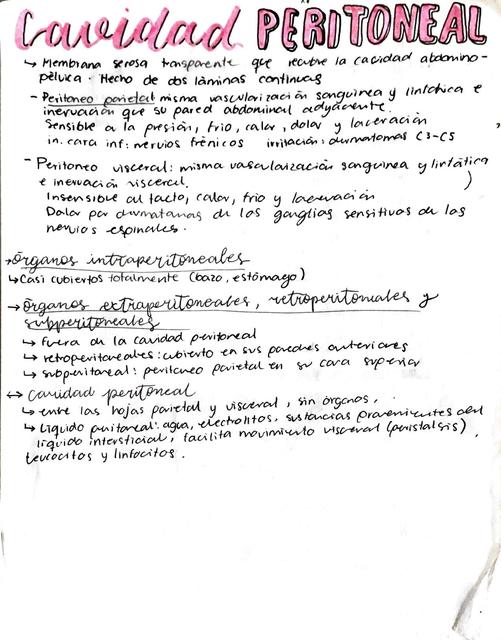 Cavidad PERITONEAL
↳ Membrana serosa transparente que recubre la cavidad abdomino-
pélvica. Hecho de dos láminas continuas
- Peritoneo parietal misma vascularización sanguínea y linfática e
inervación que su pared abdominal adyacente.
Sensible a la presión, frio, calor, dolor y laceración
in. cara inf: nervios frénicos irritación: dermatomas C3-C5
- Peritoneo visceral: misma vascularización sanguínea y linfática
e inervación visceral.
Insensible al tacto, calor, frio y laceración
Dolor por dermatomas de los ganglios sensitivos de los
nervios espinales.
→ Órganos intraperitoneales
↳ Casi cubiertos totalmente (bazo, estómago)
→ Órganos extraperitoneales, retroperitoneales y
subperitoneales
↳ fuera de la cavidad peritoneal
↳ retroperitoneales: cubierto en sus paredes anteriores
↳ subperitoneal: peritoneo parietal en su cara superior
↔ cavidad peritoneal
↳ entre las hojas parietal y visceral, sin órganos,
↳ Líquido peritoneal: agua, electrolitos, sustancias provenientes del
líquido intersticial, facilita movimiento visceral (peristalsis),
leucocitos y linfocitos.